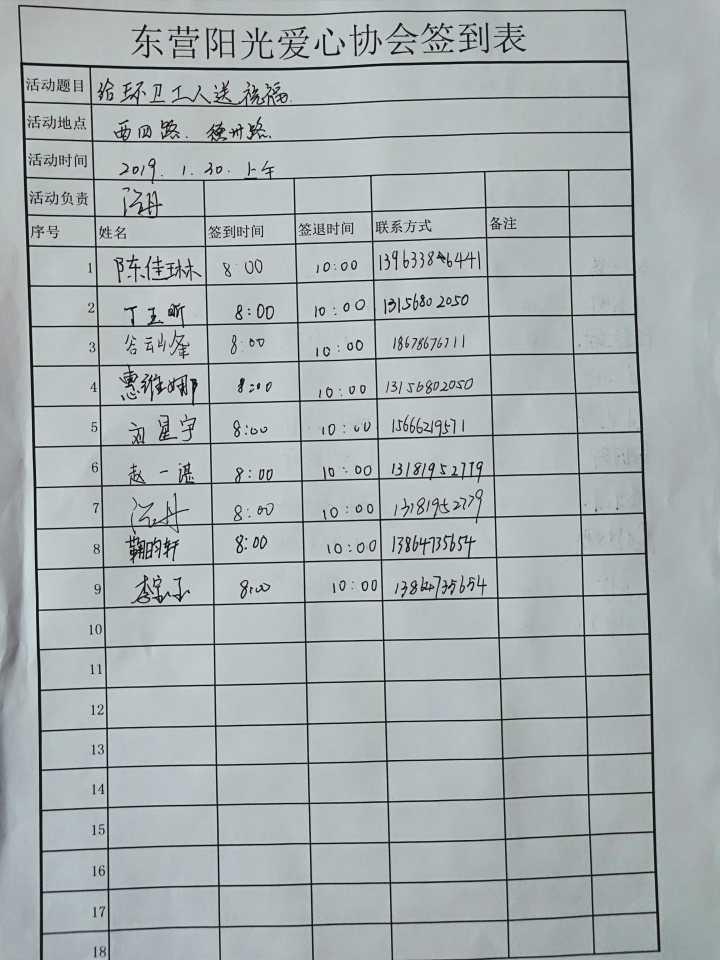 东营阳光爱心协会签到表
活动题目 给环卫工人送祝福.
活动地点 西四路. 德州路.
活动时间 2019. 1. 30. 上午
活动负责
序号 姓名 签到时间 签退时间 联系方式 备注
1 陈佳琳 8:00 10:00 13963386441
2 丁玉昕 8:00 10:00 13156802050
3 谷云峰 8:00 10:00 18678676711
4 惠维娜 8:00 10:00 13156802050
5 刘星宇 8:00 10:00 15666219571
6 赵一谌 8:00 10:00 13181952779
7 8:00 10:00 13181952779
8 鞠昀轩 8:00 10:00 13864735654
9 8:00 10:00 13864735654
10
11
12
13
14
15
16
17
18